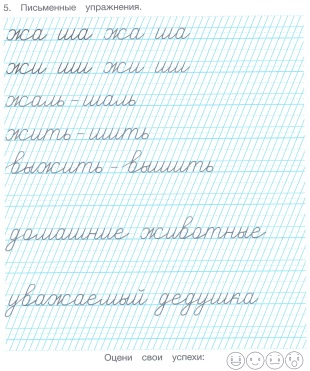 5. Письменные упражнения.
жа ша жа ша
жи ши жи ши
жаль - шаль
жить - шить
выжить - вышить
домашние животные
уважаемый дедушка
Оцени свои успехи: